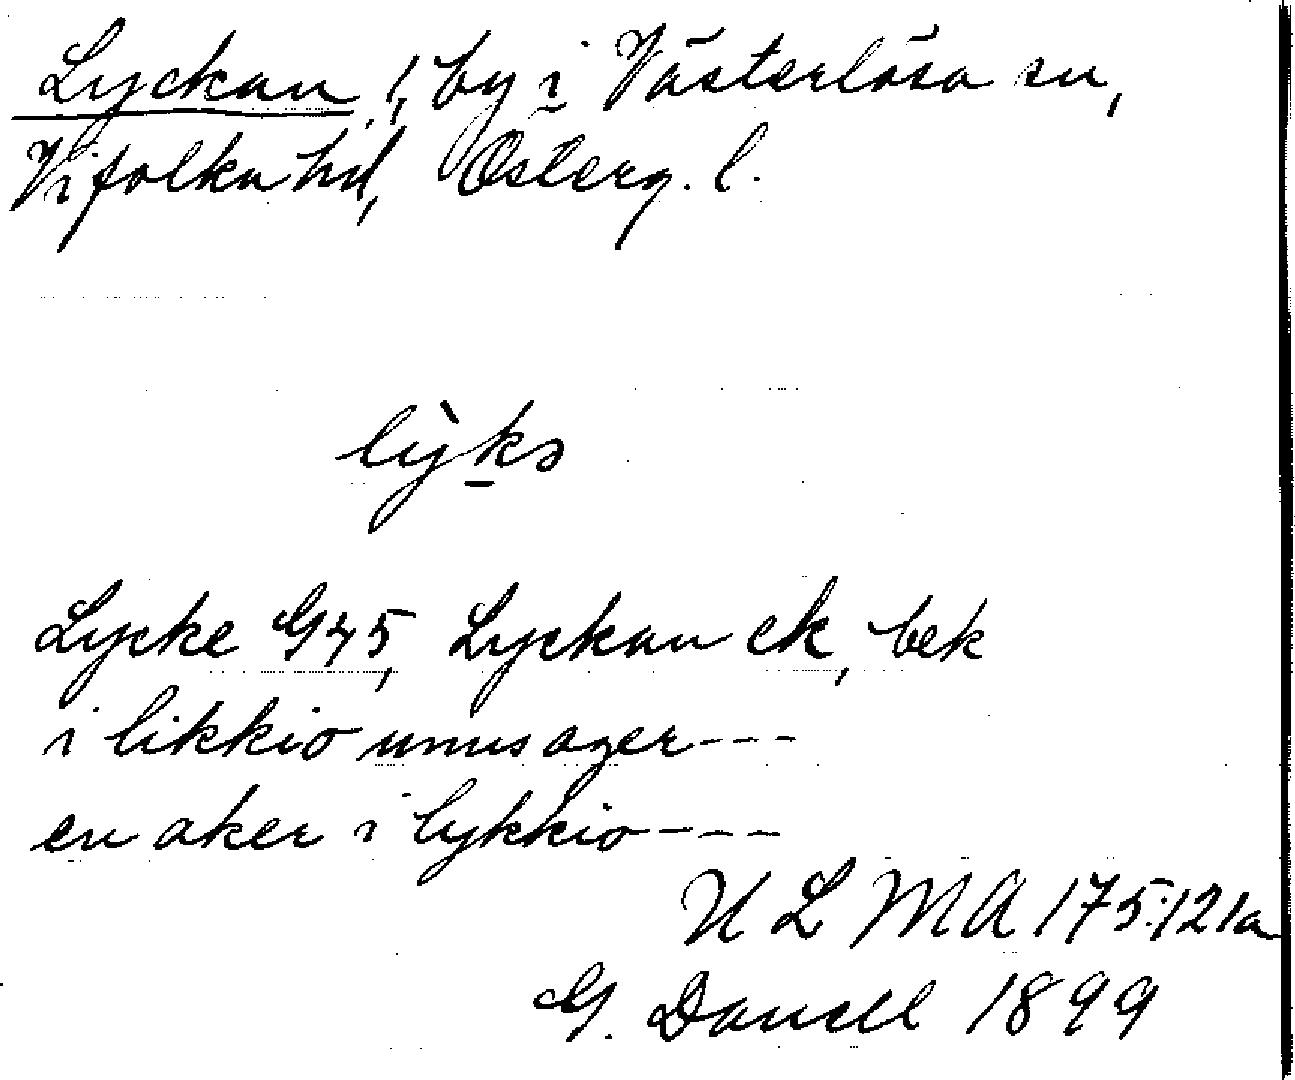 Lyckan, by i Västerlösa sn,
Vifolka hd, Österg. l.
lỳkə
Lycke G45, Lyckan ek, bek
i likkio unus ager - - -
en aker i lykkio - - -
ULMA 175:121a
G. Danell 1899